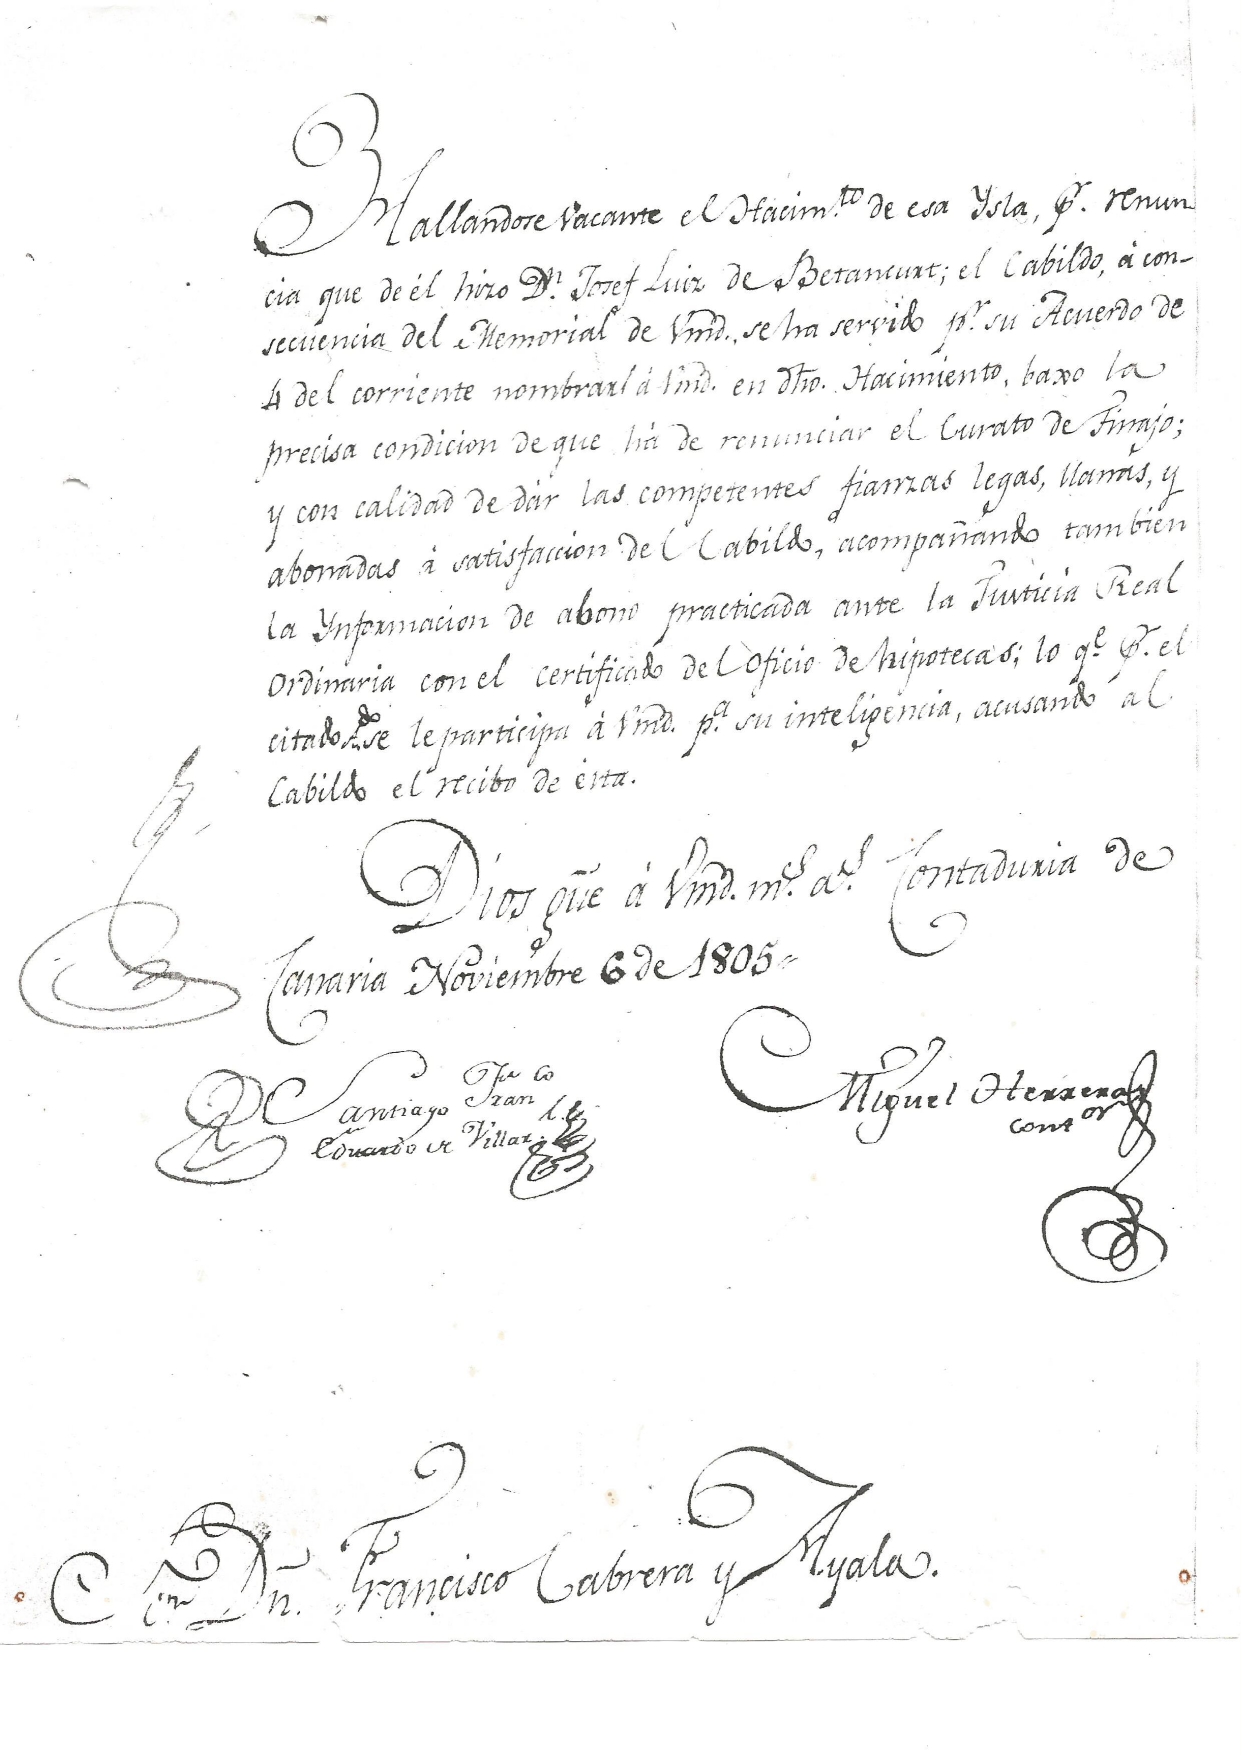 Hallandose vacante el Hacim.to de esa Ysla, pr. renun
cia que de él hizo Dn. Josef Luiz de Betancurt; el Cabildo, á con-
secuencia del Memorial de Vmd., se ha servido pr. su Acuerdo de
4 del corriente nombrarle á Vmd. en dho. Hacimiento, baxo la
precisa condicion de que há de renunciar el Curato de Tinajo;
y con calidad de dár las competentes fianzas legas, llanas, y
abonadas á satisfaccion del Cabildo, acompañando tambien
la Ynformacion de abono practicada ante la Justicia Real
Ordinaria con el certificado del Oficio de hipotecas; lo qe. pr. el
citado se le participa á Vmd. pa. su inteligencia, acusando al
Cabildo el recibo de ésta.
Dios gũe á Vmd. ms. as. Contaduria de
Canaria Noviembre 6 de 1805
Santiago Fran co
Eduardo de Villar
Miguel Herrera
Contor
Sor. Dn. Francisco Cabrera y Ayala.